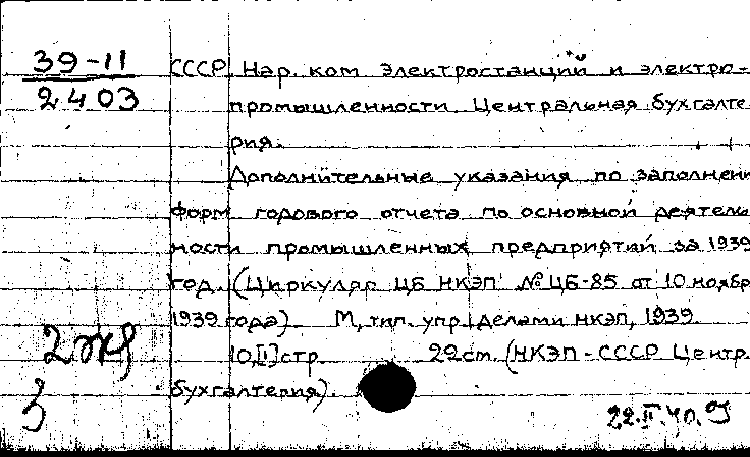 39-11
2403
СССР. Нар. ком электростанций и электро-
промышленности. Центральная бухгалте
рия.
Дополнительные указания по заполнени
форм годового отчета по основной деятель
ности промышленных предприятий за 1939
год. (Циркуляр ЦБ НКЭП № ЦБ-85 от 10 ноябр
1939 года). М, тип. упр. делами НКЭП, 1939.
10,[1] стр. 22 см. (НКЭП-СССР Центр.
бухгалтерия).
22.II.40.